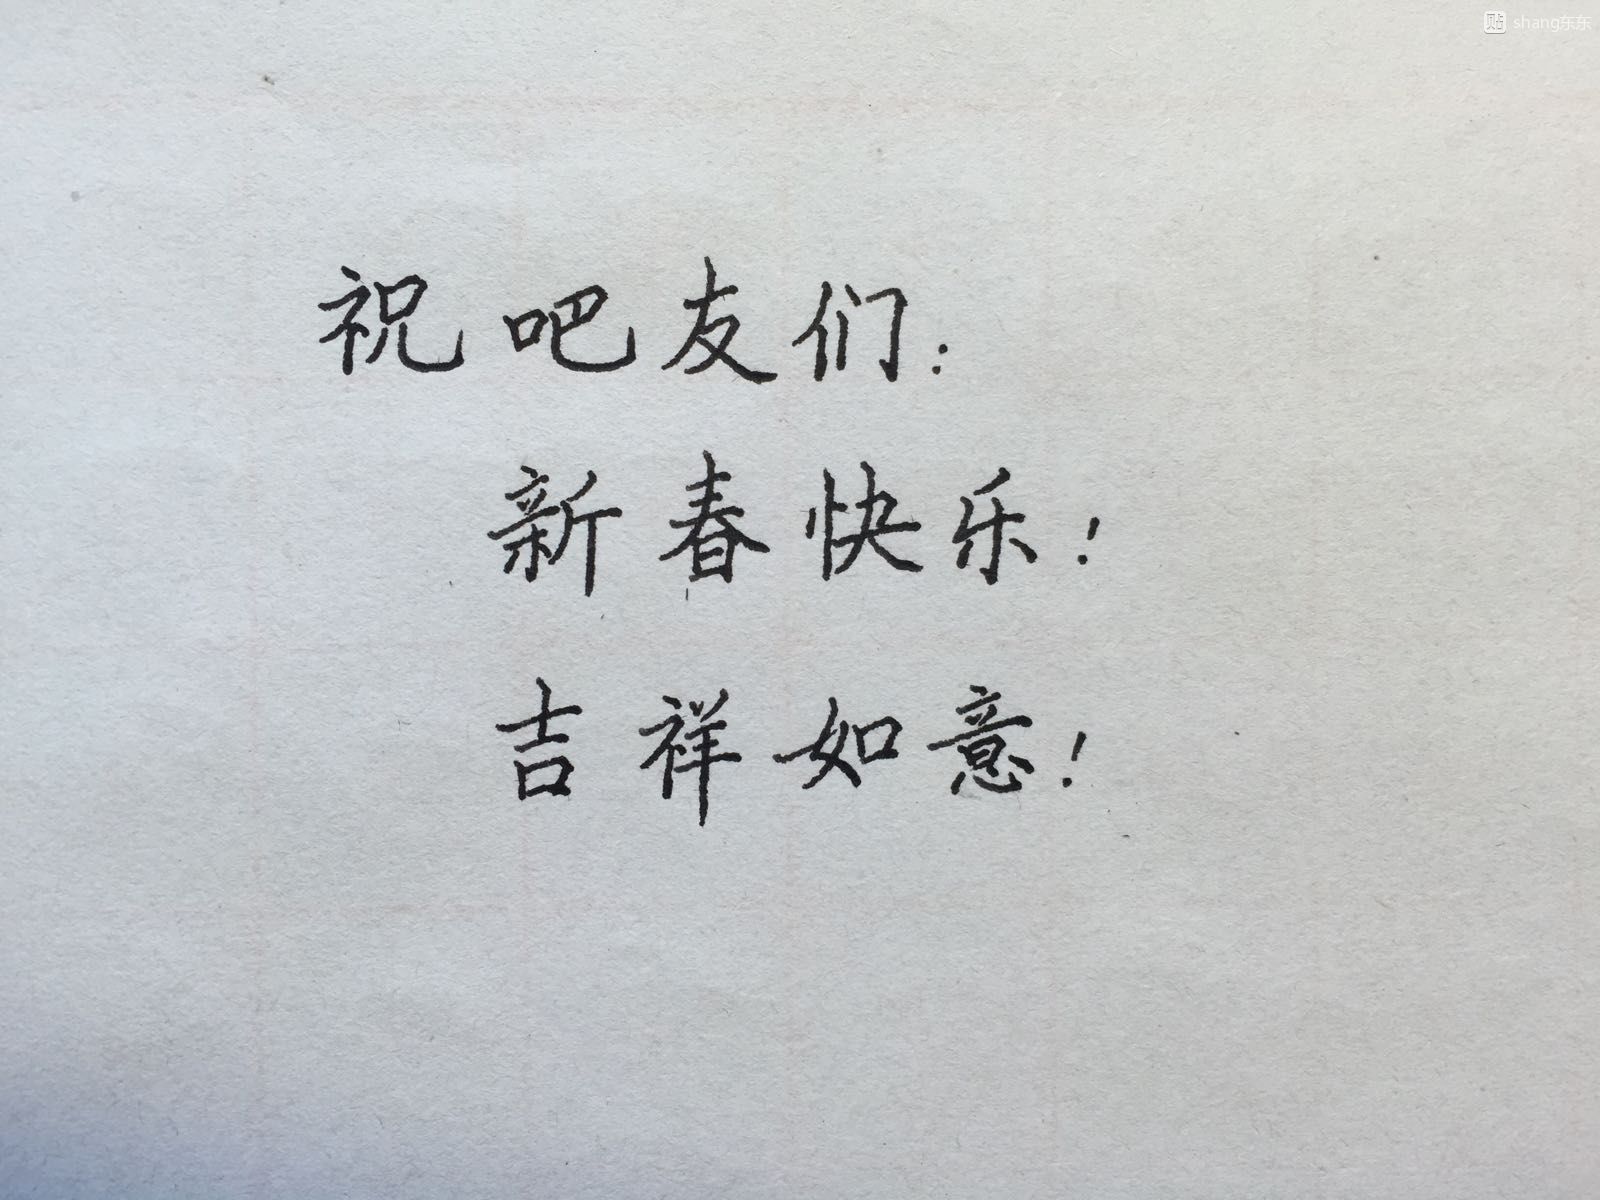 贴 shang东东
祝吧友们：
新春快乐！
吉祥如意！